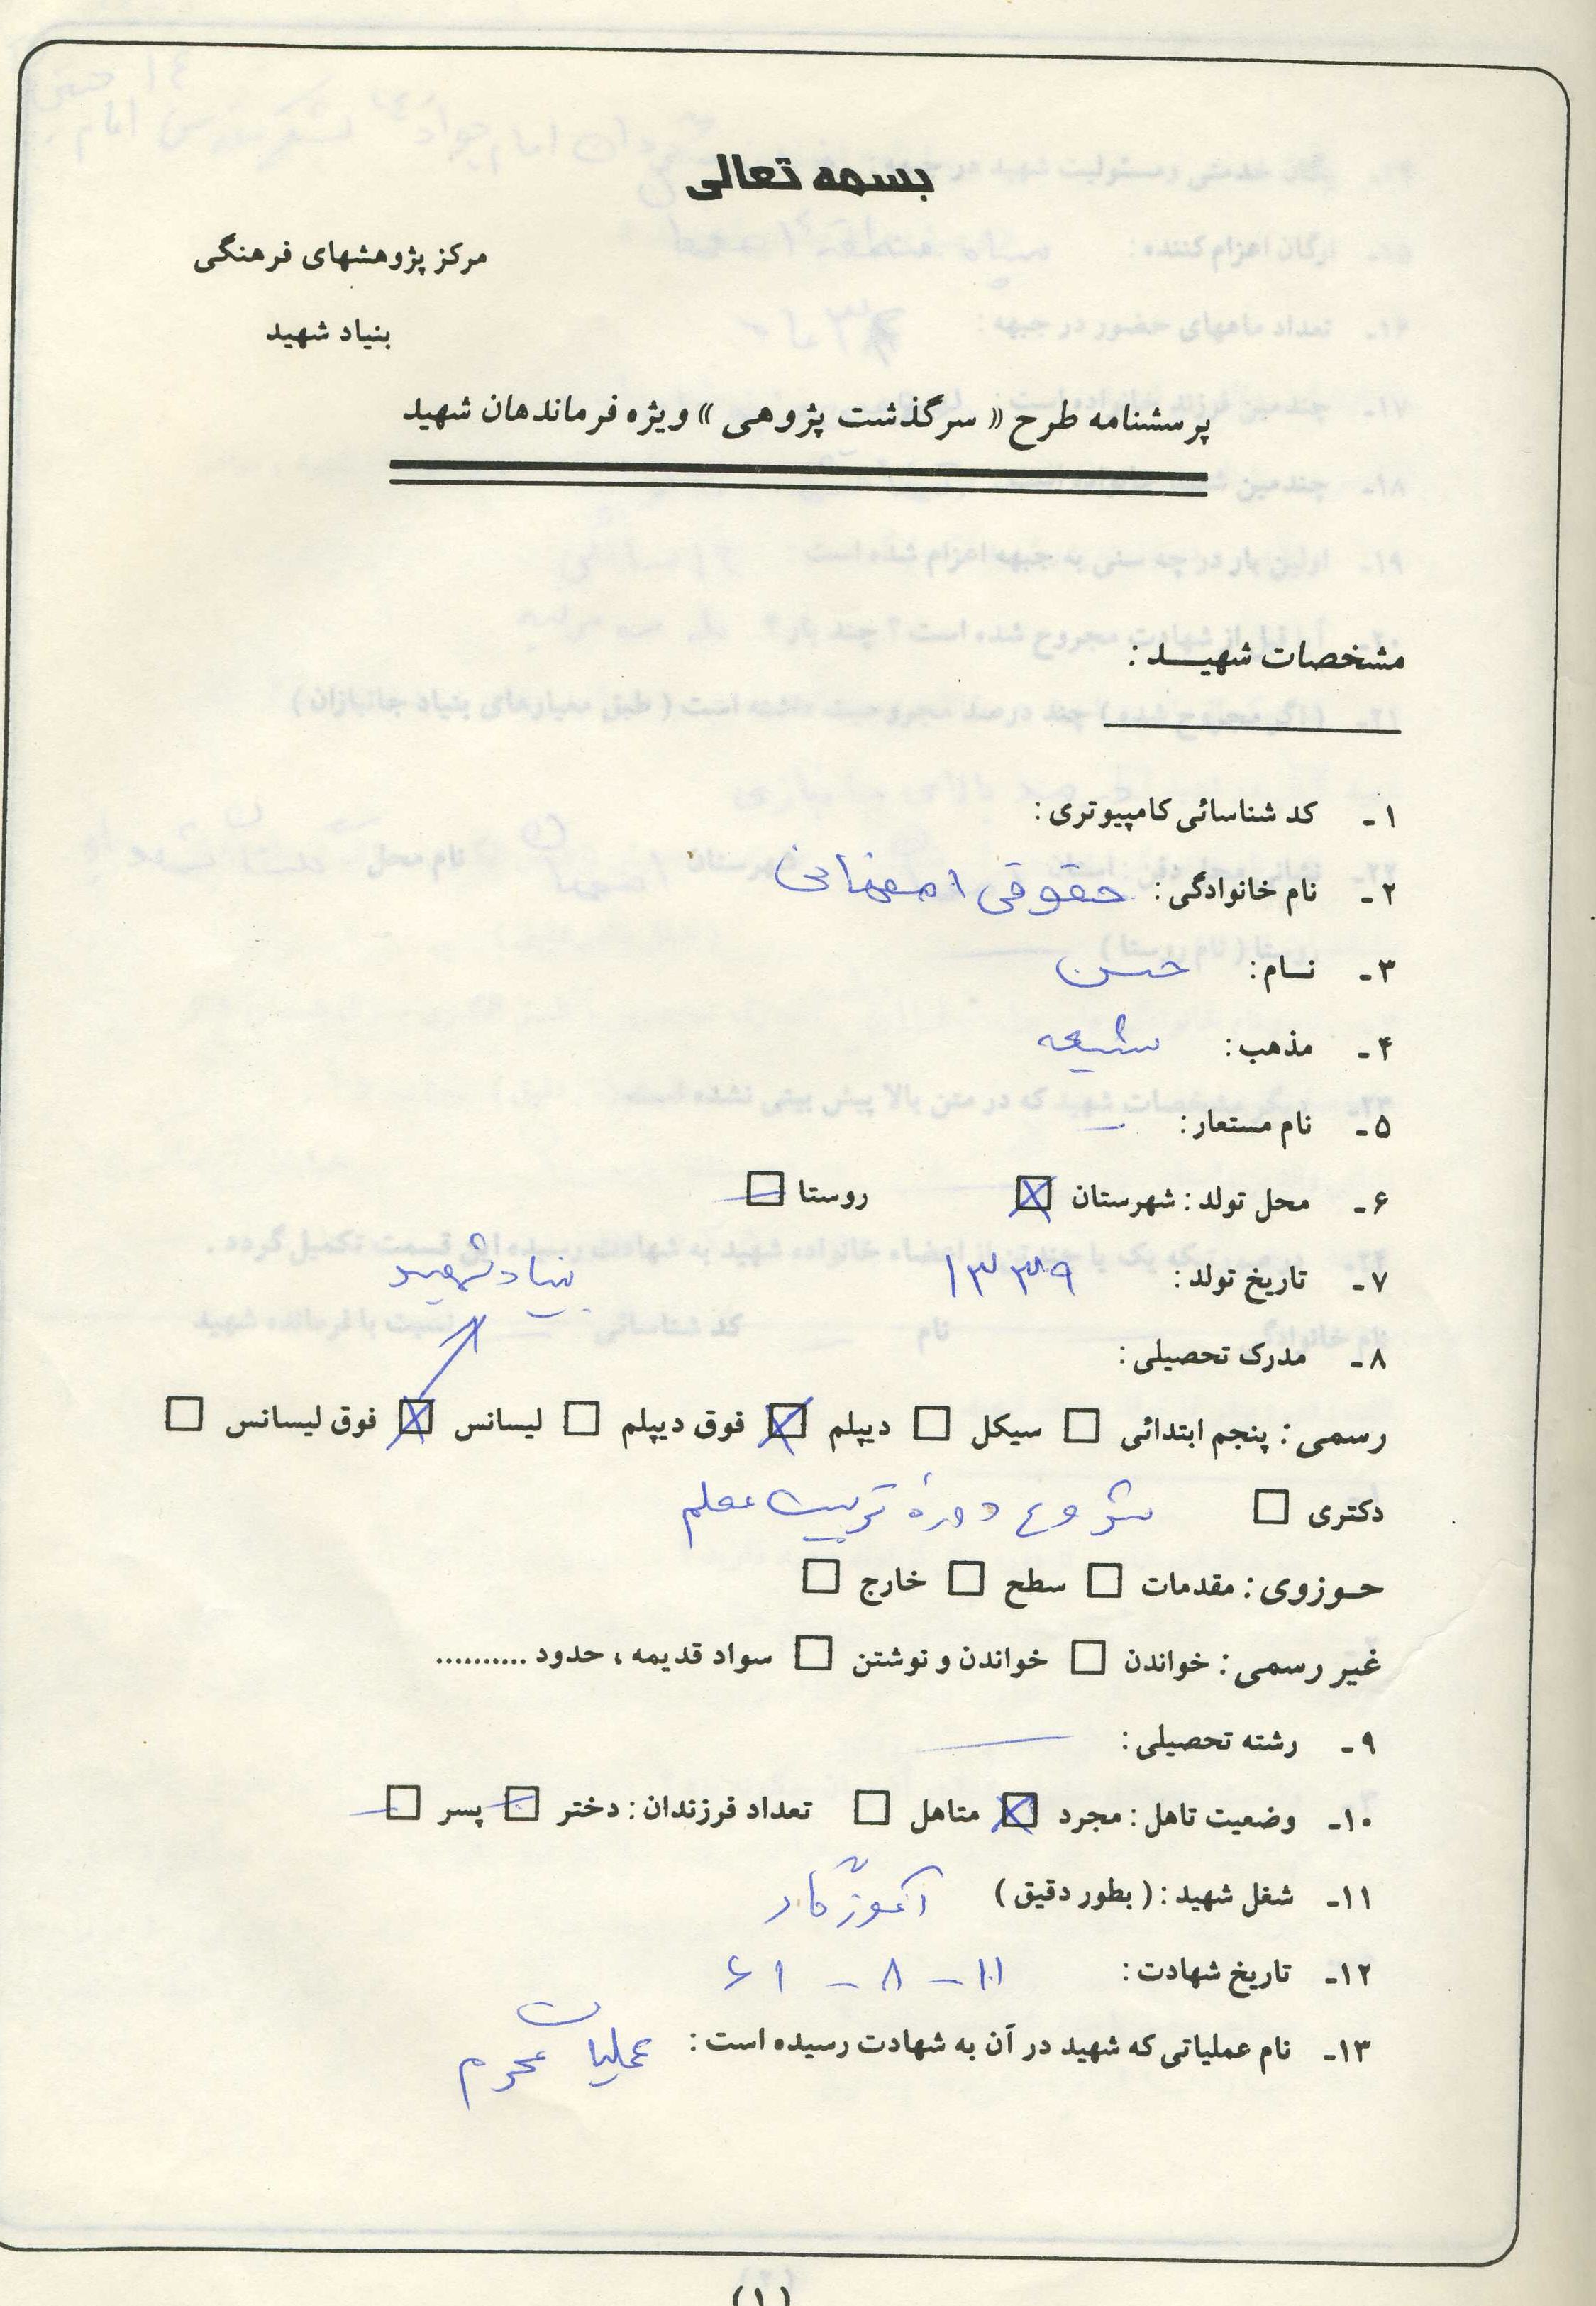 بسمه تعالی
مرکز پژوهشهای فرهنگی
بنیاد شهید
پرسشنامه طرح « سرگذشت پژوهی » ویژه فرماندهان شهید
مشخصات شهیـــد :
۱ـ کد شناسائی کامپیوتری :
۲ـ نام خانوادگی : حقوقی اصفهانی
۳ـ نــام : حسن
۴ـ مذهب : شیعه
۵ـ نام مستعار : -
۶ـ محل تولد : شهرستان ☒ روستا ☐
۷ـ تاریخ تولد : ۱۳۳۹ بنیاد شهید
۸ـ مدرک تحصیلی :
رسمی : پنجم ابتدائی ☐ سیکل ☐ دیپلم ☒ فوق دیپلم ☐ لیسانس ☒ فوق لیسانس ☐
دکتری ☐ شروع دورهٔ تربیت معلم
حـوزوی : مقدمات ☐ سطح ☐ خارج ☐
غیر رسمی : خواندن ☐ خواندن و نوشتن ☐ سواد قدیمه ، حدود ..........
۹ـ رشته تحصیلی : —
۱۰ـ وضعیت تاهل : مجرد ☒ متاهل ☐ تعداد فرزندان : دختر ☐ پسر ☐
۱۱ـ شغل شهید : ( بطور دقیق ) آموزگار
۱۲ـ تاریخ شهادت : ۱۱ - ۸ - ۶۱
۱۳ـ نام عملیاتی که شهید در آن به شهادت رسیده است : عملیات محرم
(۱)